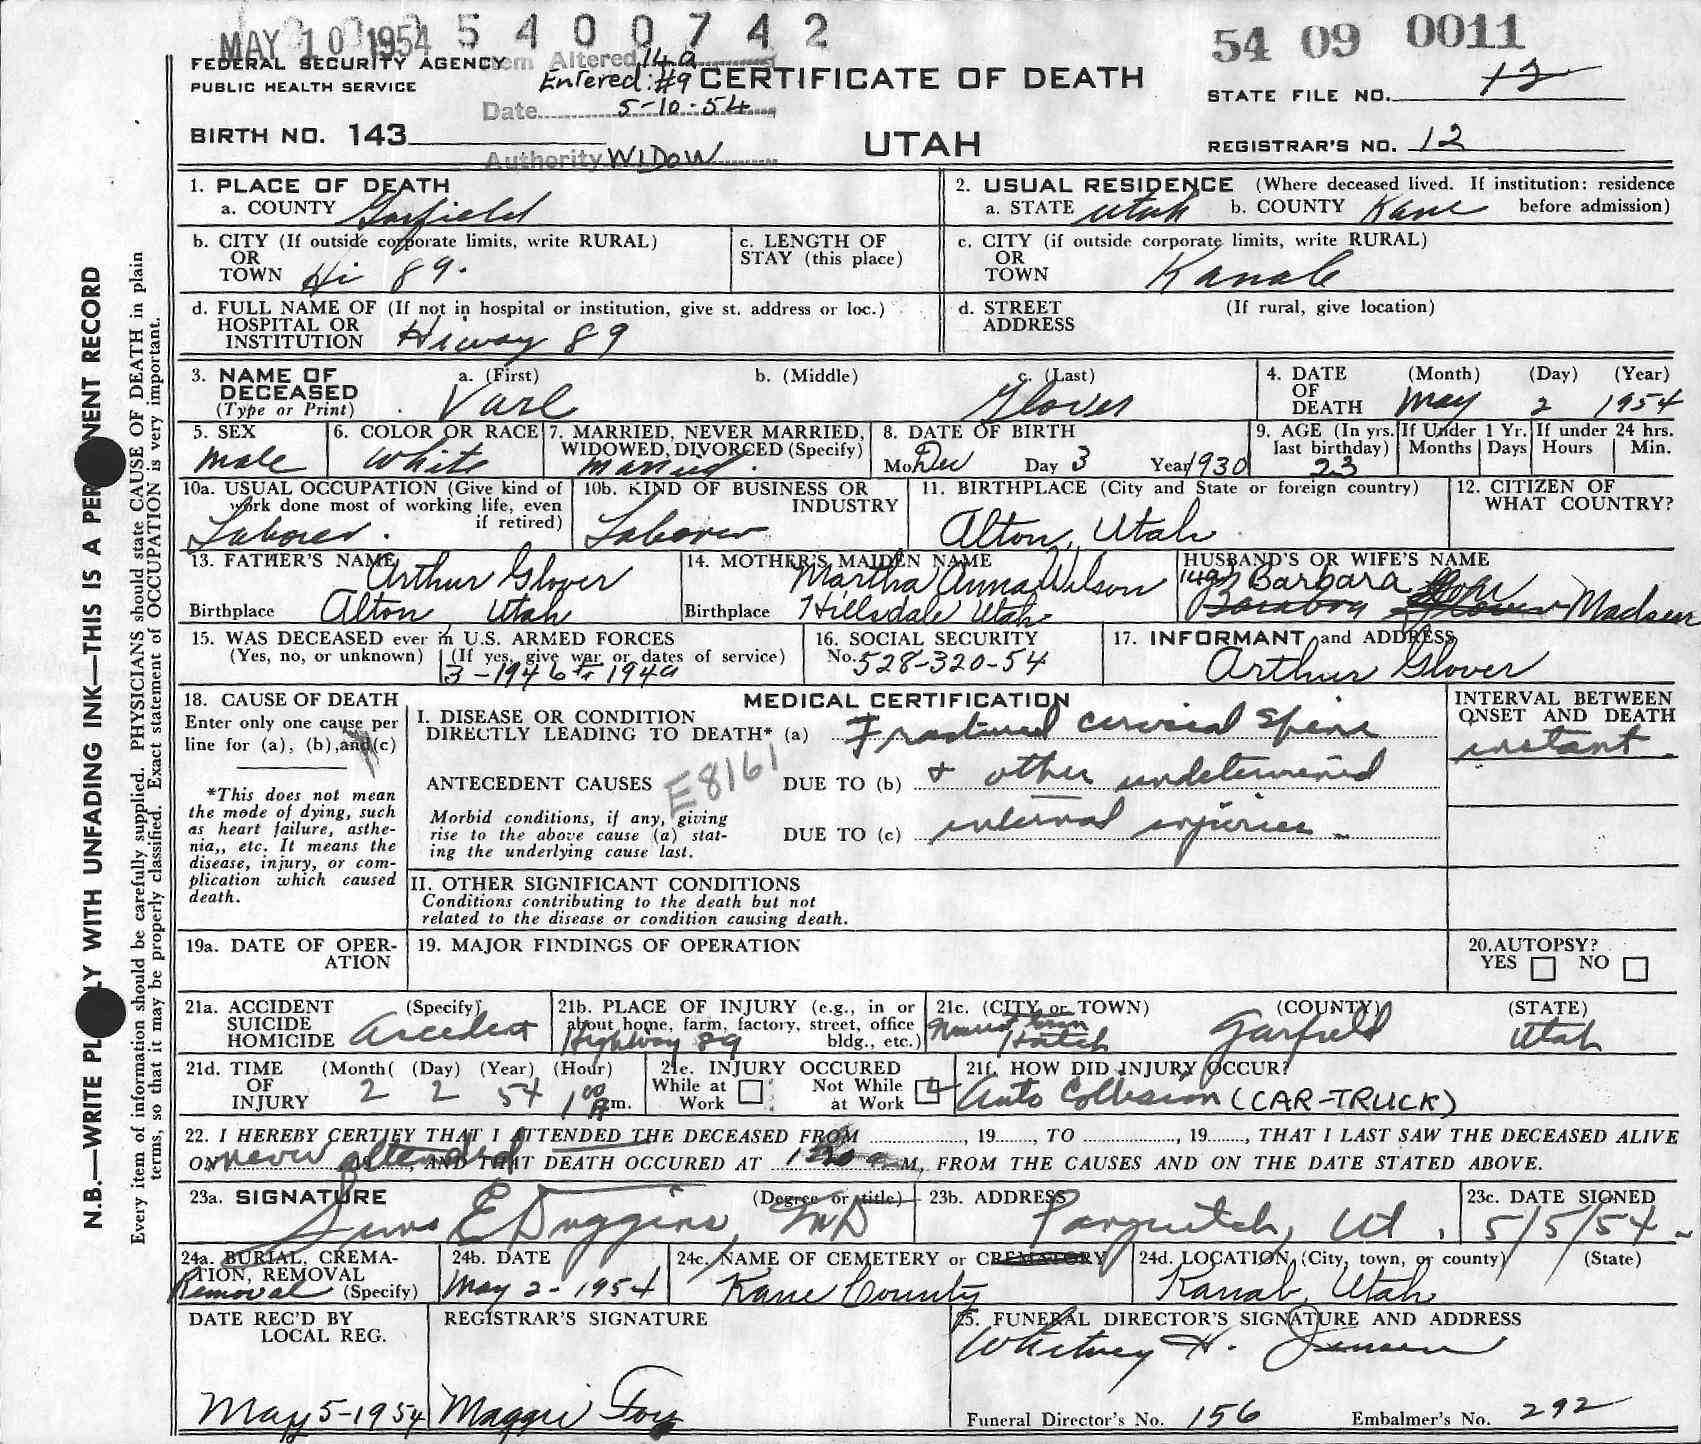 MAY 10 1954 5 4 0 0 7 4 2
54 09 0011
FEDERAL SECURITY AGENCY
PUBLIC HEALTH SERVICE
Item Altered 14a
Entered: #9
Date 5-10-54
Authority WIDOW
CERTIFICATE OF DEATH
UTAH
STATE FILE NO. 12
BIRTH NO. 143
REGISTRAR'S NO. 12
1. PLACE OF DEATH
a. COUNTY Garfield
2. USUAL RESIDENCE (Where deceased lived. If institution: residence before admission)
a. STATE Utah b. COUNTY Kane
b. CITY (If outside corporate limits, write RURAL)
OR
TOWN Hi 89.
c. LENGTH OF
STAY (this place)
c. CITY (if outside corporate limits, write RURAL)
OR
TOWN Kanab
d. FULL NAME OF (If not in hospital or institution, give st. address or loc.)
HOSPITAL OR
INSTITUTION Hiway 89
d. STREET (If rural, give location)
ADDRESS
3. NAME OF
DECEASED
(Type or Print)
a. (First) Varl
b. (Middle)
c. (Last) Glover
4. DATE
OF
DEATH
(Month) (Day) (Year)
May 2 1954
5. SEX
Male
6. COLOR OR RACE
White
7. MARRIED, NEVER MARRIED,
WIDOWED, DIVORCED (Specify)
Married.
8. DATE OF BIRTH
Mo Dec Day 3 Year 1930
9. AGE (In yrs. last birthday)
23
If Under 1 Yr.
Months Days
If under 24 hrs.
Hours Min.
10a. USUAL OCCUPATION (Give kind of
work done most of working life, even
if retired)
Laborer.
10b. KIND OF BUSINESS OR
INDUSTRY
Laborer
11. BIRTHPLACE (City and State or foreign country)
Alton, Utah
12. CITIZEN OF
WHAT COUNTRY?
13. FATHER'S NAME Arthur Glover
Birthplace Alton Utah
14. MOTHER'S MAIDEN NAME
Martha Anna Wilson
Birthplace Hillsdale Utah
HUSBAND'S OR WIFE'S NAME
14a) Barbara
Madsen
15. WAS DECEASED ever in U.S. ARMED FORCES
(Yes, no, or unknown) (If yes, give war or dates of service)
3-1946 to 1949
16. SOCIAL SECURITY
No. 528-320-54
17. INFORMANT and ADDRESS
Arthur Glover
18. CAUSE OF DEATH
Enter only one cause per
line for (a), (b), and (c)
*This does not mean
the mode of dying, such
as heart failure, asthe-
nia,, etc. It means the
disease, injury, or com-
plication which caused
death.
MEDICAL CERTIFICATION
I. DISEASE OR CONDITION
DIRECTLY LEADING TO DEATH* (a) Fractured cervical spine
ANTECEDENT CAUSES E8161 DUE TO (b) & other undetermined
Morbid conditions, if any, giving
rise to the above cause (a) stat-
ing the underlying cause last.
DUE TO (c) internal injuries
INTERVAL BETWEEN
ONSET AND DEATH
instant
II. OTHER SIGNIFICANT CONDITIONS
Conditions contributing to the death but not
related to the disease or condition causing death.
19a. DATE OF OPER-
ATION
19. MAJOR FINDINGS OF OPERATION
20. AUTOPSY?
YES NO
21a. ACCIDENT (Specify)
SUICIDE
HOMICIDE
Accedent
21b. PLACE OF INJURY (e.g., in or
about home, farm, factory, street, office
bldg., etc.)
Highway 89
21c. (CITY or TOWN) (COUNTY) (STATE)
Nearest town
Hatch Garfield Utah
21d. TIME (Month( (Day) (Year) (Hour)
OF
INJURY 2 2 54 1 00 A m.
21e. INJURY OCCURED
While at Work Not While at Work
21f. HOW DID INJURY OCCUR?
Auto Collision (CAR-TRUCK)
22. I HEREBY CERTIFY THAT I ATTENDED THE DECEASED FROM ........, 19......, TO ........, 19......, THAT I LAST SAW THE DECEASED ALIVE
ON never attended AND THAT DEATH OCCURED AT a M, FROM THE CAUSES AND ON THE DATE STATED ABOVE.
23a. SIGNATURE (Degree or title)
Sims E Duggins, MD
23b. ADDRESS
Panguitch, Ut.
23c. DATE SIGNED
5/5/54
24a. BURIAL, CREMA-
TION, REMOVAL
(Specify)
Removal
24b. DATE
May 2-1954
24c. NAME OF CEMETERY or CREMATORY
Kane County
24d. LOCATION (City, town, or county) (State)
Kanab, Utah
DATE REC'D BY
LOCAL REG.
May 5-1954
REGISTRAR'S SIGNATURE
Maggie Foy
25. FUNERAL DIRECTOR'S SIGNATURE AND ADDRESS
Whitney H. Jensen
Funeral Director's No. 156 Embalmer's No. 292
N.B.—WRITE PLAINLY WITH UNFADING INK—THIS IS A PERMANENT RECORD
Every item of information should be carefully supplied. PHYSICIANS should state CAUSE OF DEATH in plain
terms, so that it may be properly classified. Exact statement of OCCUPATION is very important.